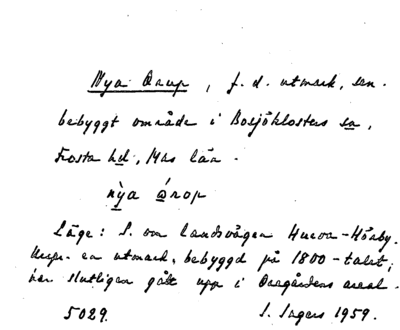 Nya Orup, f. d. utmark, sen.
bebyggt område i Bosjöklosters sn,
Frosta hd, Mas län.
nỳa órop
Läge: S. om landsvägen Hurva-Hörby.
Urspr. en utmark, bebyggd på 1800-talet;
har slutligen gått upp i Orupgårdens areal.
5029. S. Ingers 1959.